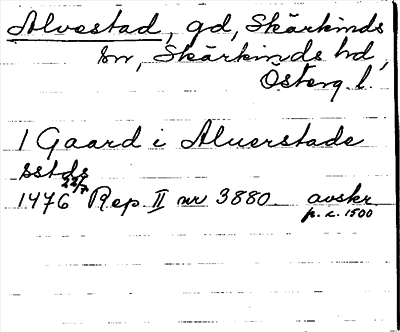 Alvestad, gd, Skärkinds
sn, Skärkinds hd,
Österg. l.
1 Gaard i Aluerstade
sstds
1476 22/7 Rep. II nr 3880 avskr.
p. c. 1500